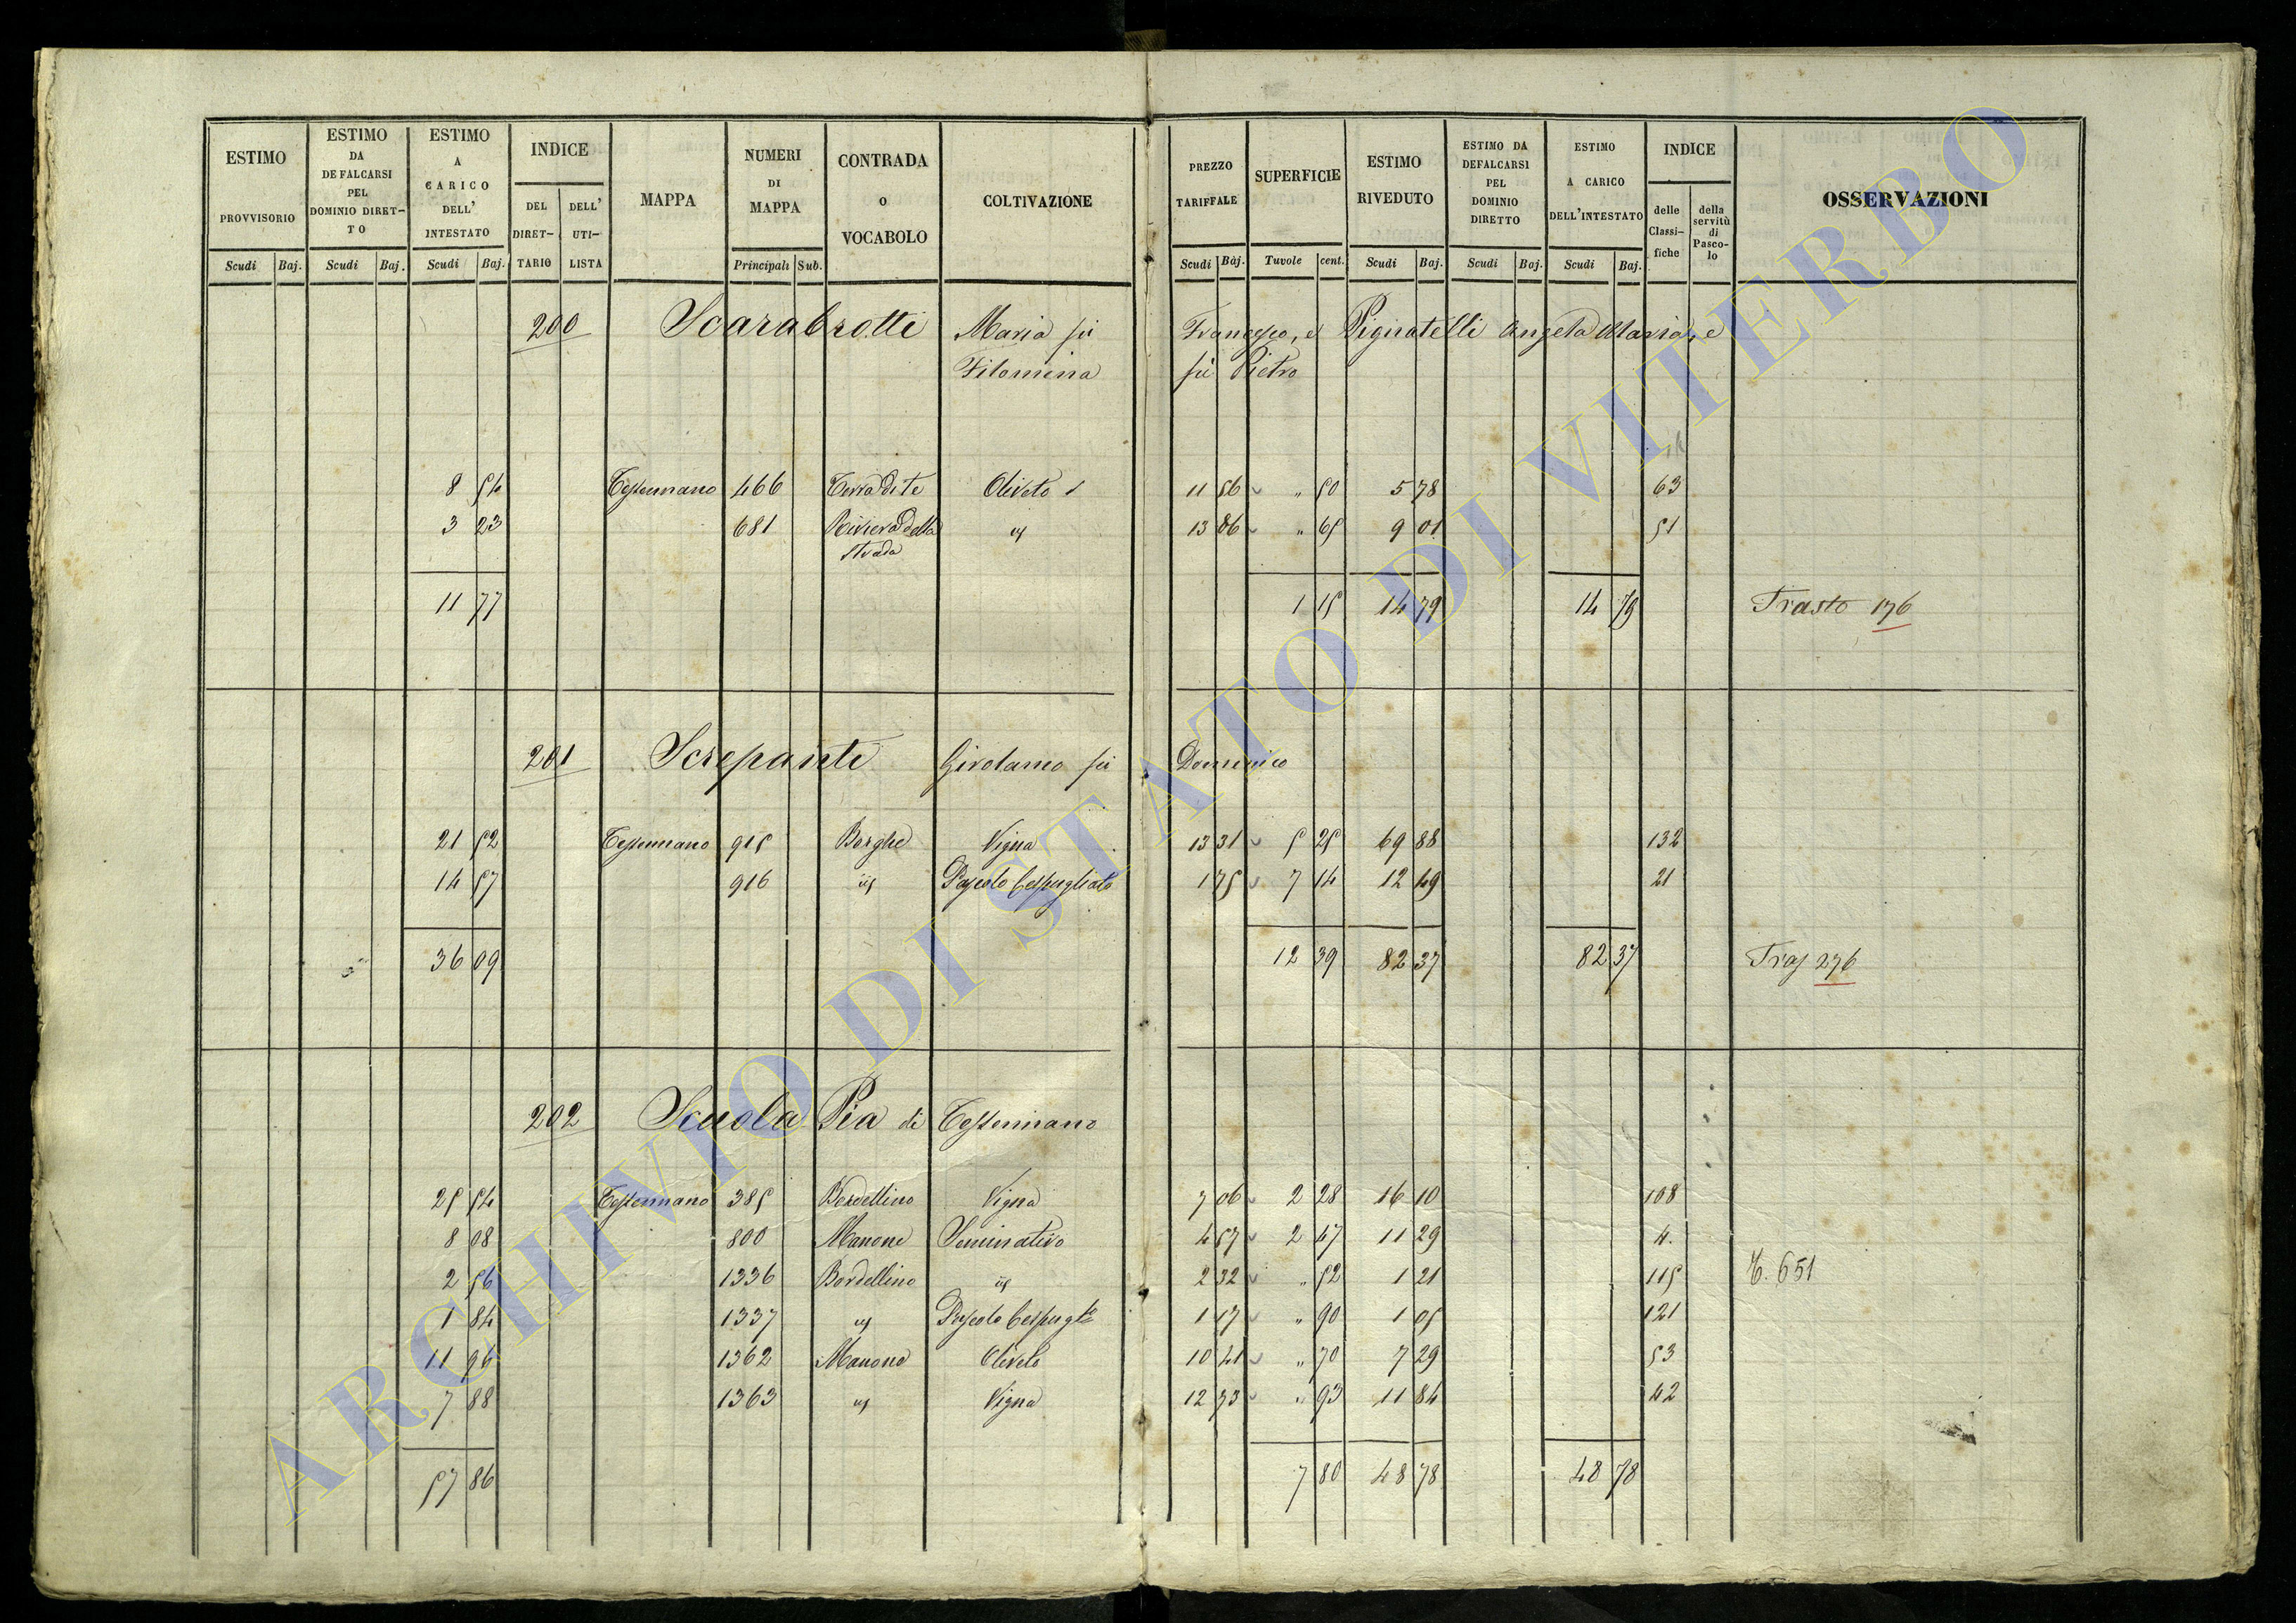 ESTIMO PROVVISORIO Scudi Baj.
ESTIMO DA DEFALCARSI PEL DOMINIO DIRET–TO Scudi Baj.
ESTIMO A CARICO DELL' INTESTATO Scudi Baj.
INDICE DEL DIRET–TARIO DELL' UTI–LISTA
MAPPA
NUMERI DI MAPPA Principali Sub.
CONTRADA O VOCABOLO
COLTIVAZIONE
PREZZO TARIFFALE Scudi Baj.
SUPERFICIE Tavole cent.
ESTIMO RIVEDUTO Scudi Baj.
ESTIMO DA DEFALCARSI PEL DOMINIO DIRETTO Scudi Baj.
ESTIMO A CARICO DELL'INTESTATO Scudi Baj.
INDICE delle Classi–fiche della servitù di Pasco–lo
OSSERVAZIONI
200 Scarabrotti Maria fù Francesco, e Pignatelli Angela Maria, e
Filomena fù Pietro
8 54 Tessennano 466 Terra di te Oliveto 11 56 " 50 5 78 63
3 23 681 Riviera della strada id 13 86 " 65 9 01 51
11 77 1 15 14 79 14 79 Trasto 176
201 Screpanti Girolamo fù Domenico
21 52 Tessennano 915 Borghe Vigna 13 31 5 25 69 88 132
14 57 916 id Pascolo Cespugliato 1 75 7 14 12 49 21
36 09 12 39 82 37 82 37 Tras 276
202 Scuola Pia di Tessennano
25 54 Tessennano 385 Bordellino Vigna 7 06 2 28 16 10 108
8 08 800 Manone Seminativo 4 57 2 47 11 29 4.
2 56 1336 Bordellino id 2 32 " 52 1 21 115 T. 651
1 84 1337 id Pascolo Cespugto 1 17 " 90 1 05 121
11 96 1362 Manone Oliveto 10 41 " 70 7 29 53
7 88 1363 id Vigna 12 73 " 93 11 84 42
57 86 7 80 48 78 48 78
ARCHIVIO DI STATO DI VITERBO